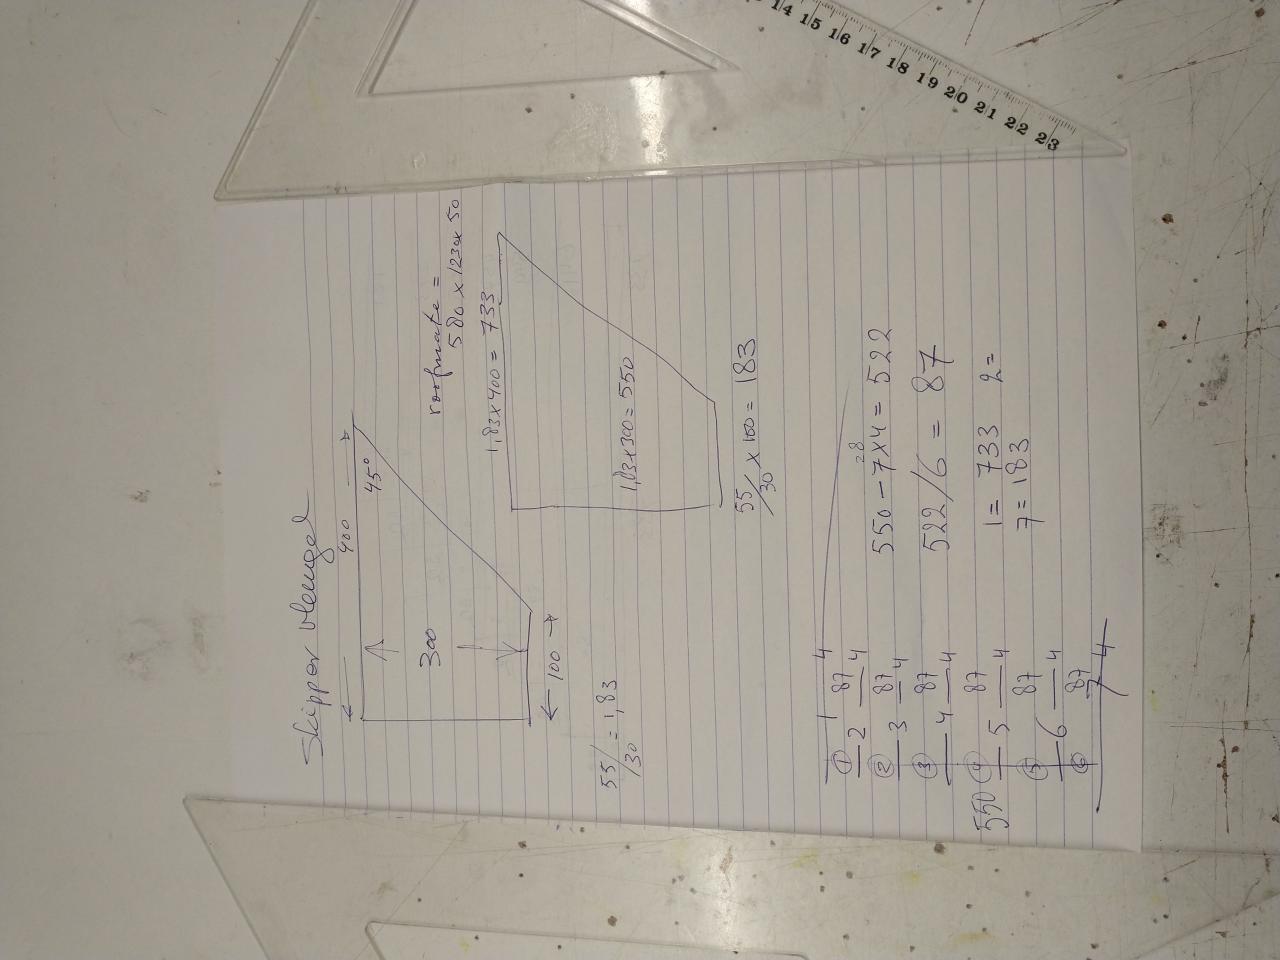 400
45°
300
100
55/30 = 1,83
roofmate =
580 x 1230 x 50
1,83 x 400 = 733
1,83 x 300 = 550
55/30 x 100 = 183
1 4
① 87
2 4
② 87
3 4
③ 87
4 4
550 ④ 87
5 4
⑤ 87
6 4
⑥ 87
7 4
28
550 - 7 x 4 = 522
522/6 = 87
1 = 733 2 =
7 = 183
14 15 16 17 18 19 20 21 22 23